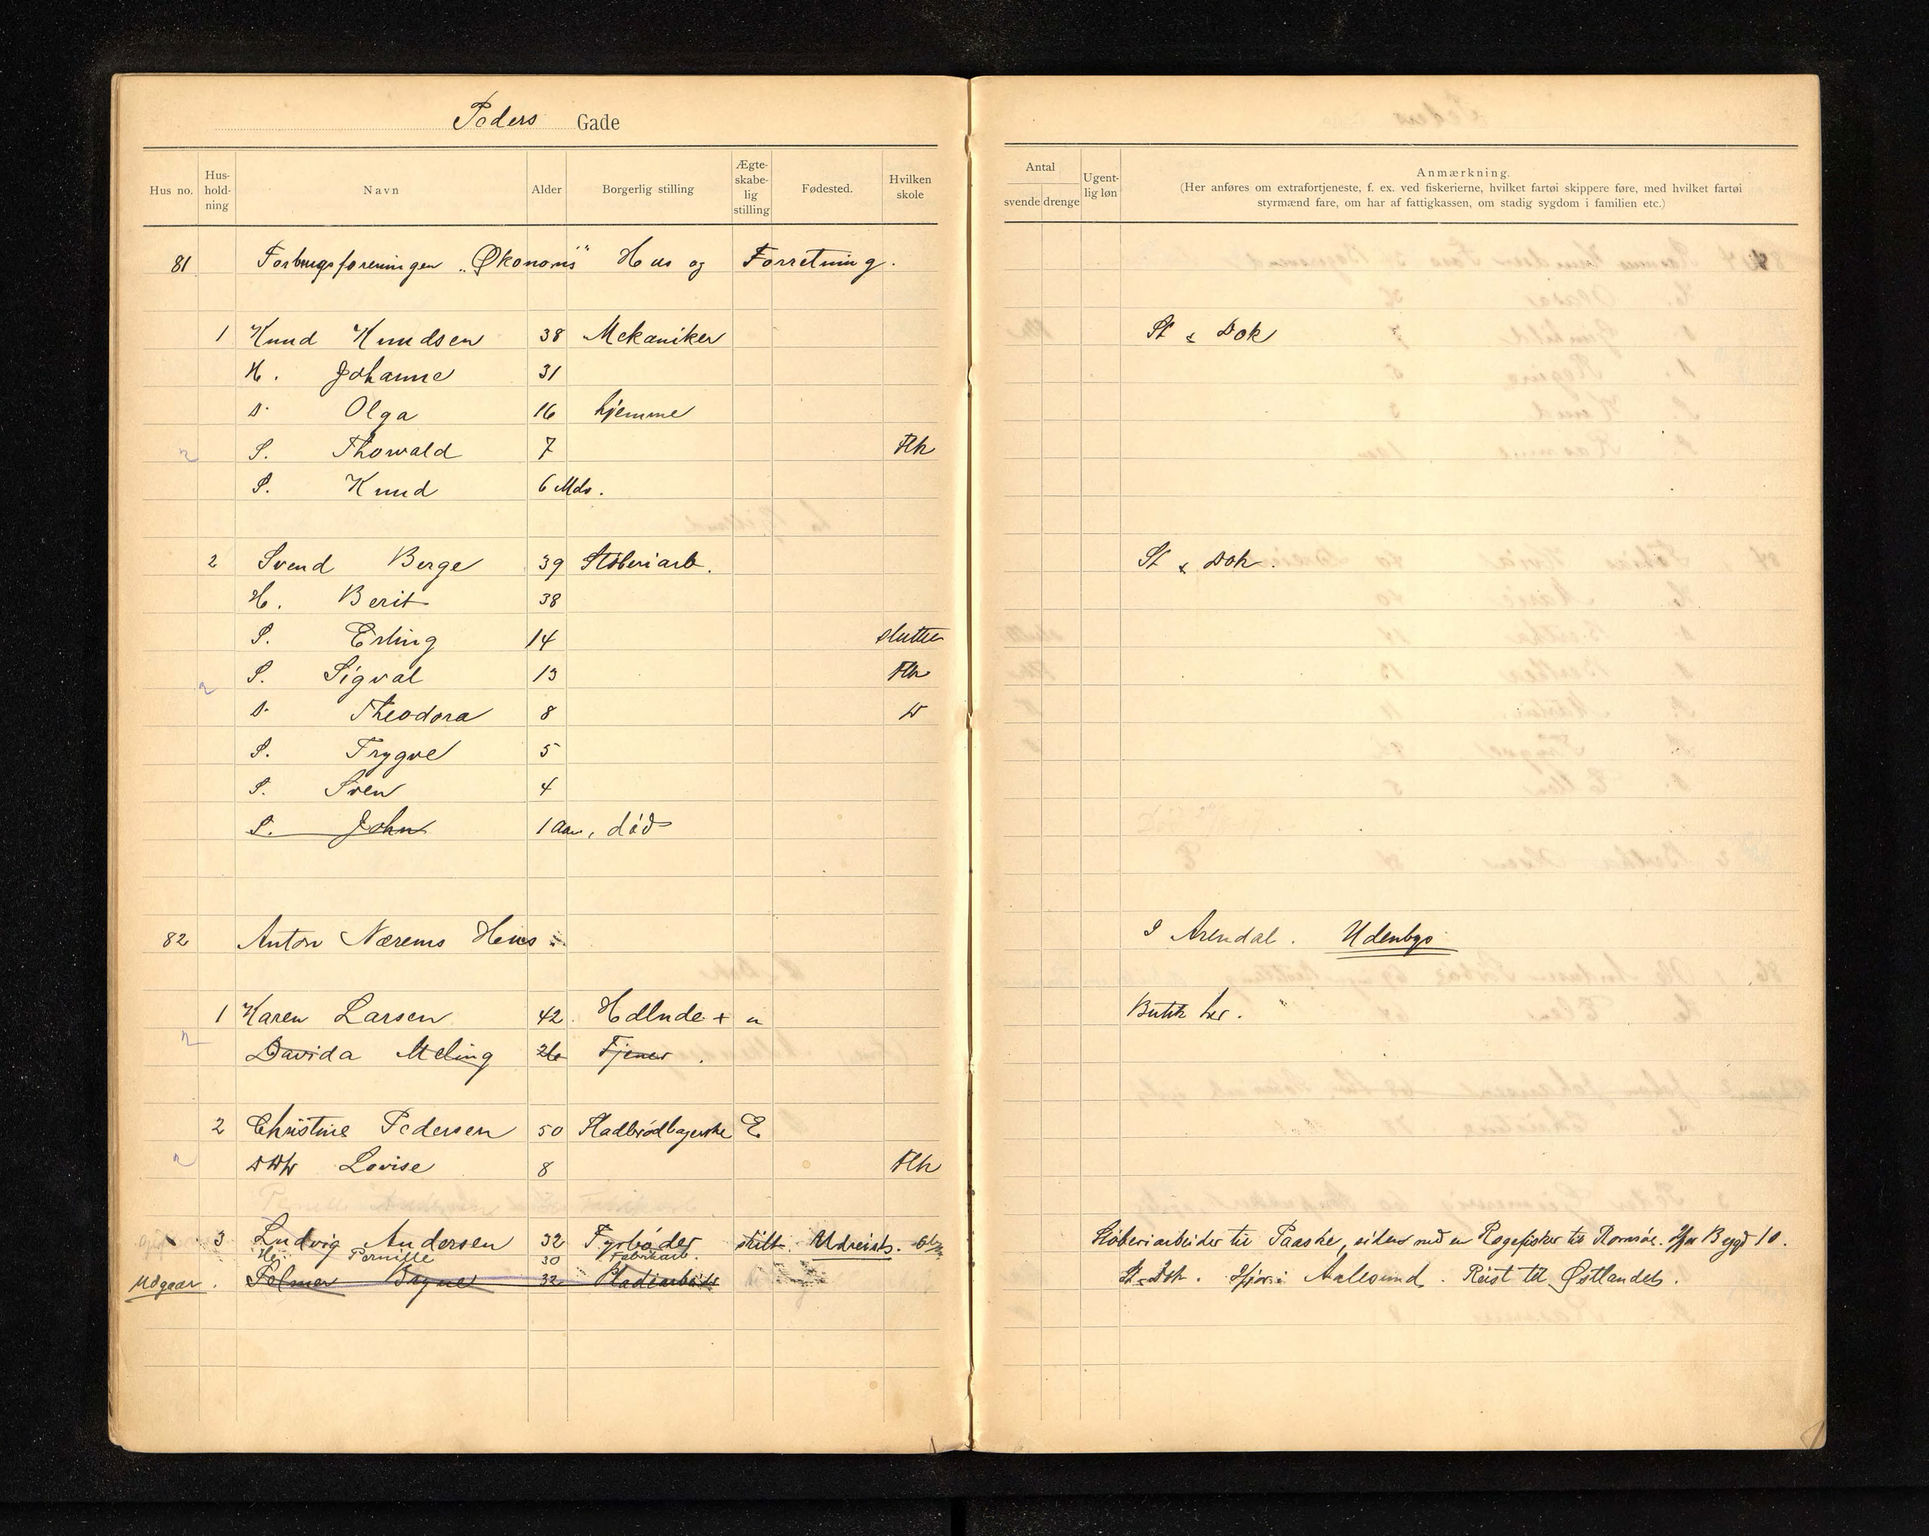 Peders Gade
Hus no. Hus-hold-ning Navn Alder Borgerlig stilling Ægte-skabe-lig stilling Fødested. Hvilken skole
Antal svende drenge Ugent-lig løn Anmærkning.
(Her anføres om extrafortjeneste, f. ex. ved fiskerierne, hvilket fartøi skippere føre, med hvilket fartøi
styrmænd fare, om har af fattigkassen, om stadig sygdom i familien etc.)
81 Forbrugsforeningen „Økonomi" Hus og Forretning.
1 Knud Knudsen 38 Mekaniker St & Dok
H. Johanne 31
D. Olga 16 hjemme
S. Thorvald 7 Flk
S. Knud 6 Mds.
2 Svend Berge 39 Støberiarb. St & Dok.
H. Berit 38
S. Erling 14 slutter
S. Sigval 13 Flk
D. Theodora 8 "
S. Trygve 5
S. Sven 4
S. John 1 Aar, død
82 Anton Nærems Hus. I Arendal. Udenbys
1 Karen Larsen 42 Hdlnde + u Butik her.
Davida Meling 26 Tjener.
2 Christine Pedersen 50 Fladbrødbagerske E
Lovise 8 Flk
3 Ludvig Andersen 32 Fyrbøder skilt. Udreist. Støberiarbeider til Paaske, siden med en Røgefisker til Bygd 10.
H. Pernille 30 Fabrikarb.
Udgaar. Pelmer Bogne 32 Pladearbeid St & Dok. Hjør i Aalesund. Reist til Østlandet.